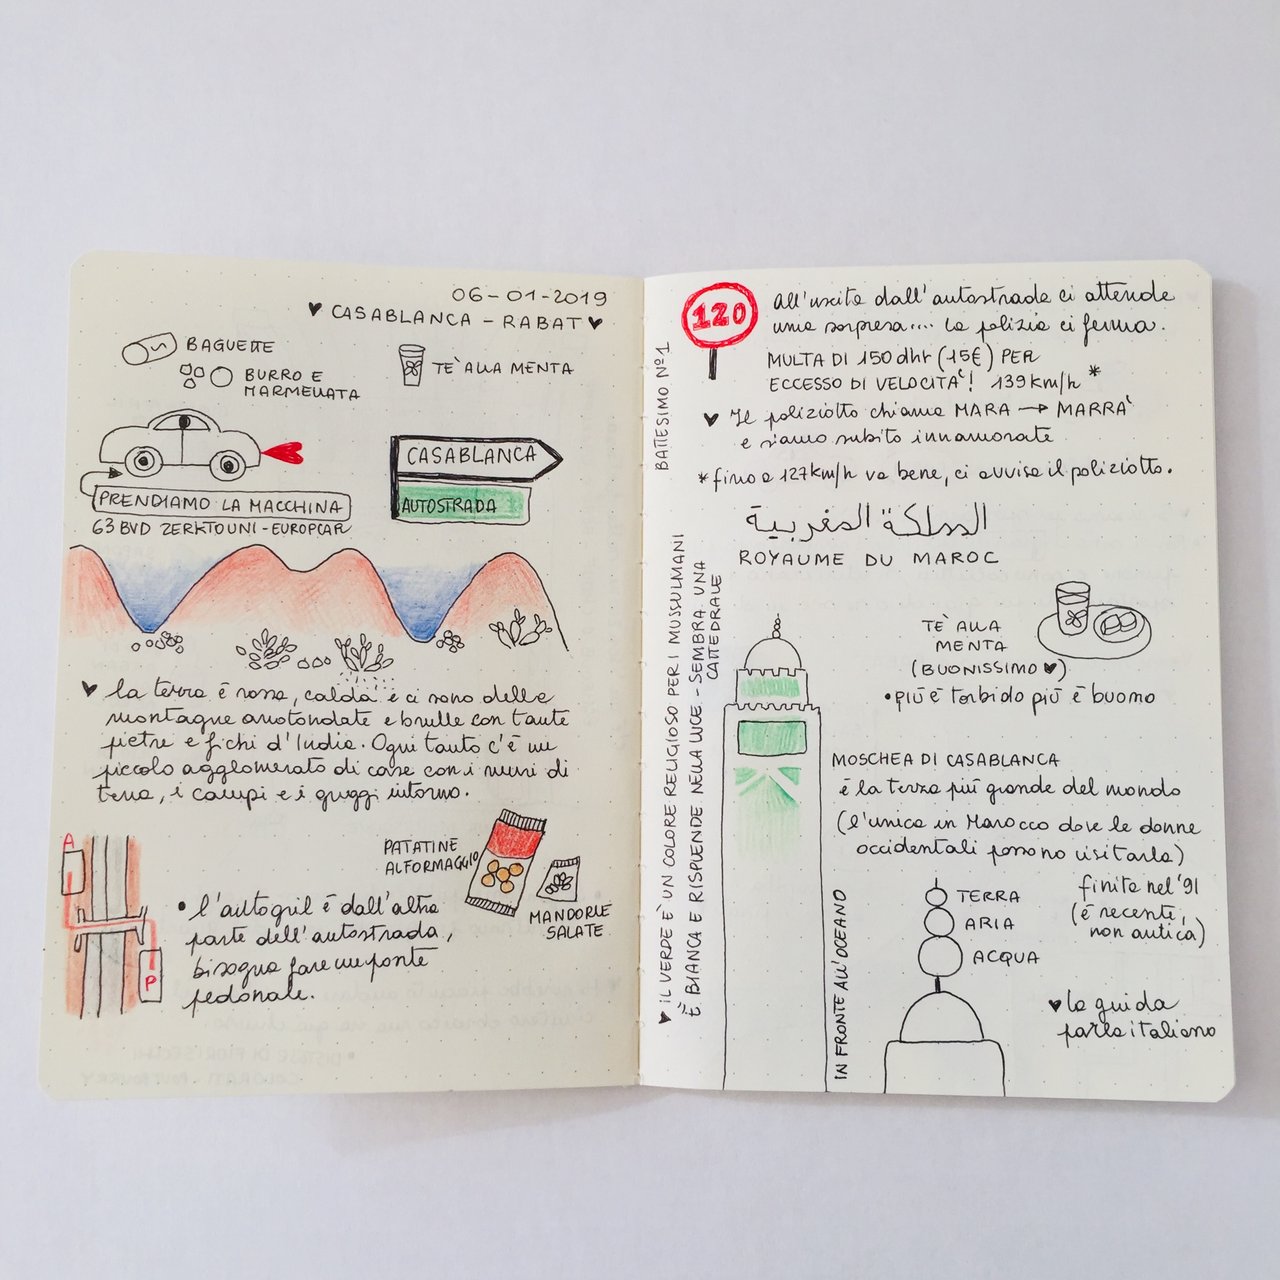 06-01-2019
♥ CASABLANCA - RABAT ♥
BAGUETTE
BURRO E
MARMELLATA
TE' ALLA MENTA
PRENDIAMO LA MACCHINA
63 BVD ZERKTOUNI - EUROPCAR
CASABLANCA
AUTOSTRADA
♥ la terra è rossa, calda e ci sono delle
montagne arrotondate e brulle con tante
pietre e fichi d'India. Ogni tanto c'è un
piccolo agglomerato di case con i muri di
terra, i campi e i greggi intorno.
PATATINE
AL FORMAGGIO
MANDORLE
SALATE
A
P
• l'autogril è dall'altra
parte dell'autostrada,
bisogna fare un ponte
pedonale.
BATTESIMO Nº1
120
All'uscita dall'autostrada ci attende
una sorpresa.... la polizia ci ferma.
MULTA DI 150 dhr (15€) PER
ECCESSO DI VELOCITA'! 139 km/h *
♥ Il poliziotto chiama MARA → MARRA'
e siamo subito innamorate
* fino a 127 km/h va bene, ci avvisa il poliziotto.
المملكة المغربية
ROYAUME DU MAROC
♥ IL VERDE E' UN COLORE RELIGIOSO PER I MUSSULMANI
E' BIANCA E RISPLENDE NELLA LUCE - SEMBRA UNA
CATTEDRALE
TE' ALLA
MENTA
(BUONISSIMO ♥)
• più è torbido più è buono
MOSCHEA DI CASABLANCA
è la terza più grande del mondo
(l'unica in Marocco dove le donne
occidentali possono visitarla)
IN FRONTE ALL'OCEANO
TERRA
ARIA
ACQUA
finita nel '91
(è recente,
non antica)
♥ la guida
parla italiano